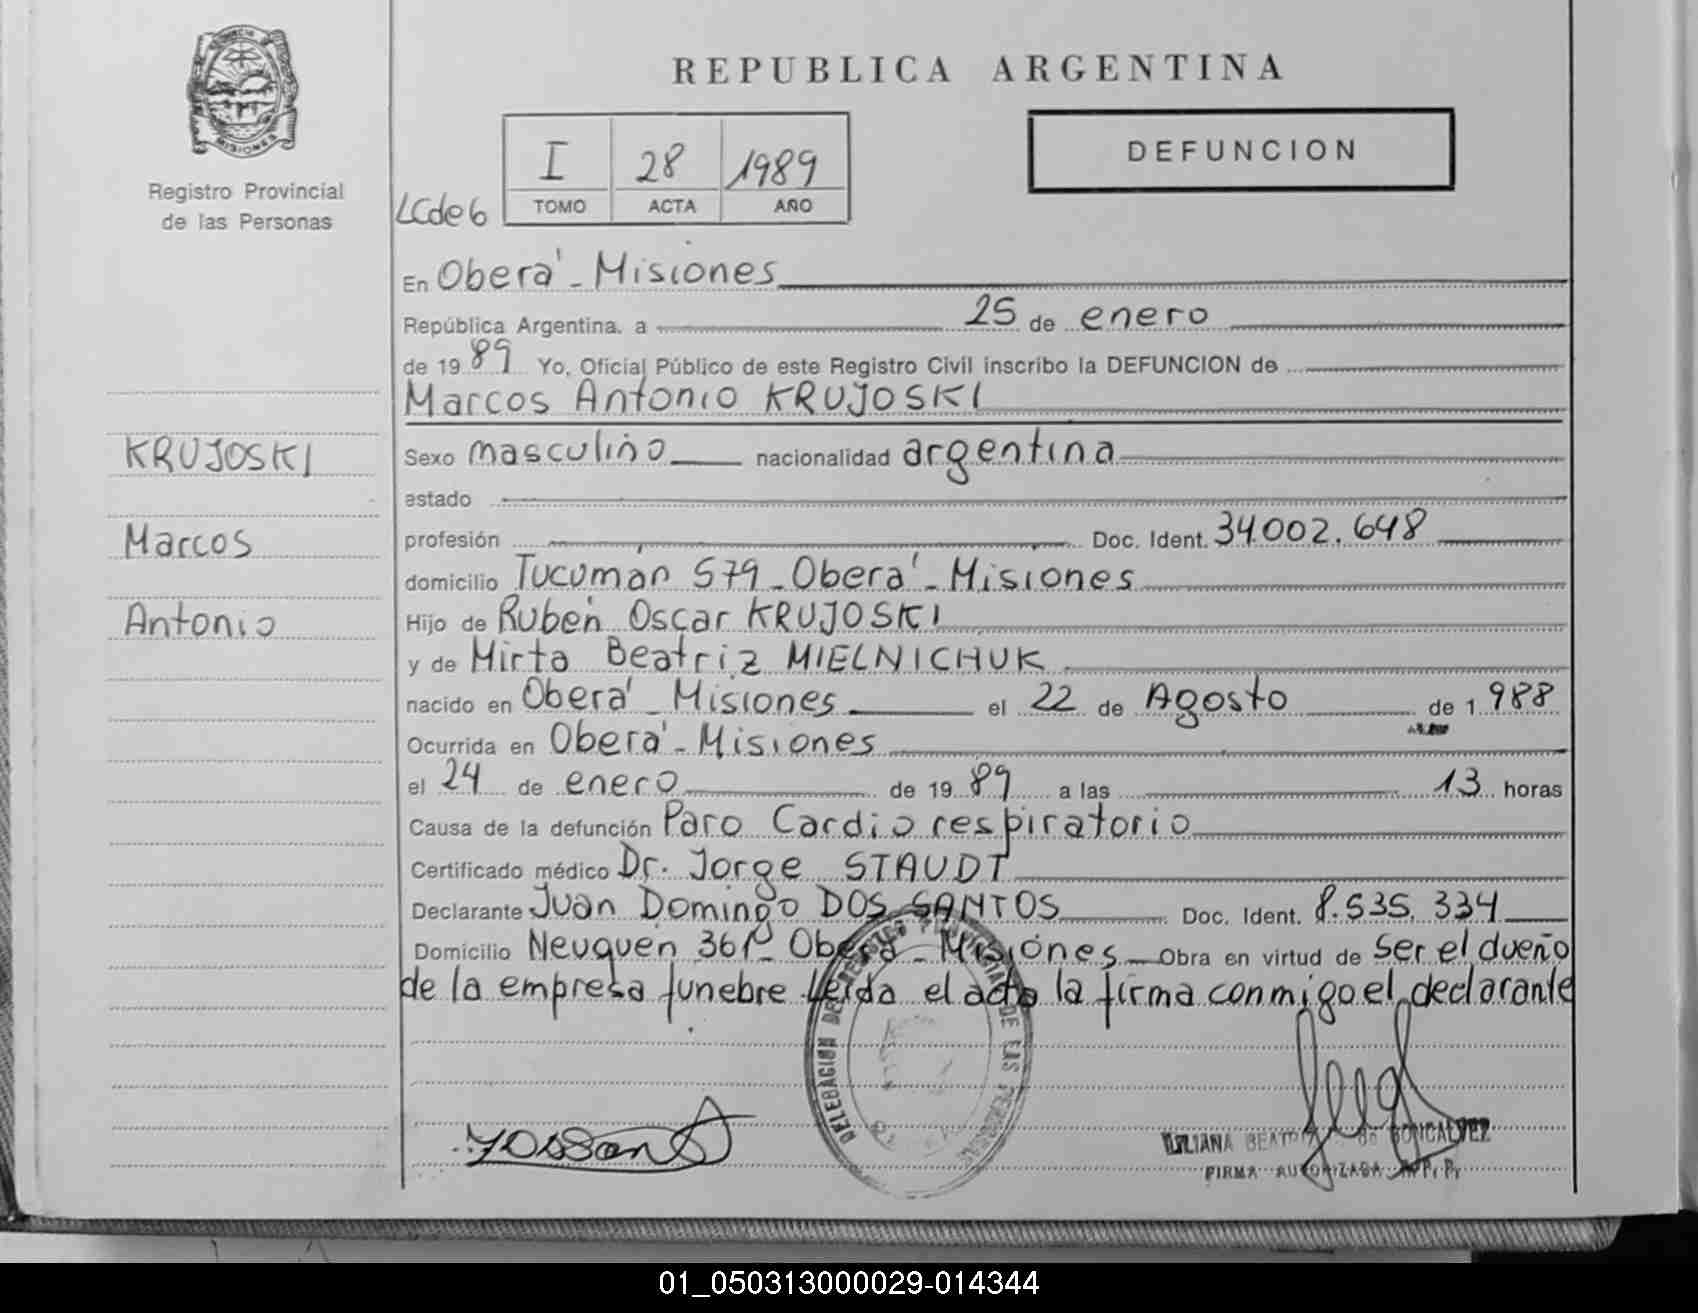 REPUBLICA ARGENTINA
MISIONES
Registro Provincial
de las Personas
LCde6
I 28 1989
TOMO ACTA AÑO
DEFUNCION
En Oberá - Misiones
República Argentina, a 25 de enero
de 1989 Yo, Oficial Público de este Registro Civil inscribo la DEFUNCION de
Marcos Antonio KRUJOSKI
KRUJOSKI
Marcos
Antonio
Sexo masculino nacionalidad argentina
estado
profesión Doc. Ident. 34.002.648
domicilio Tucuman 579 - Oberá - Misiones
Hijo de Rubén Oscar KRUJOSKI
y de Mirta Beatriz MIELNICHUK
nacido en Oberá - Misiones el 22 de Agosto de 1988
Ocurrida en Oberá - Misiones
el 24 de enero de 1989 a las 13 horas
Causa de la defunción Paro Cardio respiratorio
Certificado médico Dr. Jorge STAUDT
Declarante Juan Domingo DOS SANTOS Doc. Ident. 8.535.334
Domicilio Neuquen 361 - Oberá - Misiones Obra en virtud de ser el dueño
de la empresa funebre Leida el acta la firma conmigo el declarante
DELEGACION DEL REGISTRO PROVINCIAL DE LAS PERSONAS
BEATRIZ de GONCALVEZ
FIRMA AUTORIZADA
01_050313000029-014344